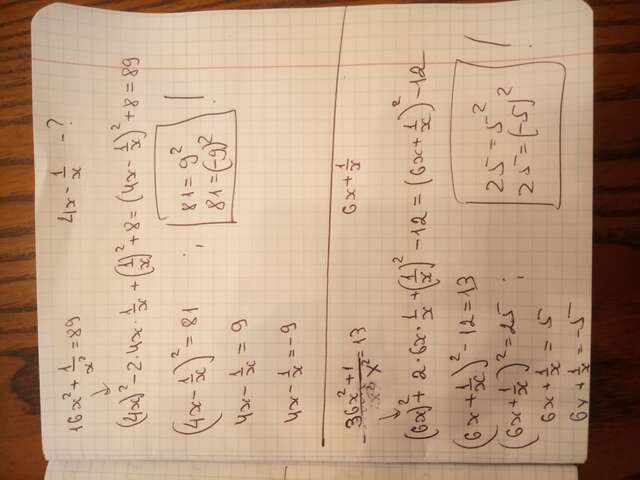 16x² + 1/x² = 89    4x - 1/x - ?
(4x)² - 2·4x·1/x + (1/x)² + 8 = (4x - 1/x)² + 8 = 89
(4x - 1/x)² = 81 ; 81 = 9² !
81 = (-9)²
4x - 1/x = 9
4x - 1/x = -9
36x² + 1/x² = 13    6x + 1/x
(6x)² + 2·6x·1/x + (1/x)² - 12 = (6x + 1/x)² - 12
(6x + 1/x)² - 12 = 13
(6x + 1/x)² = 25 ; 25 = 5² !
25 = (-5)²
6x + 1/x = 5
6x + 1/x = -5